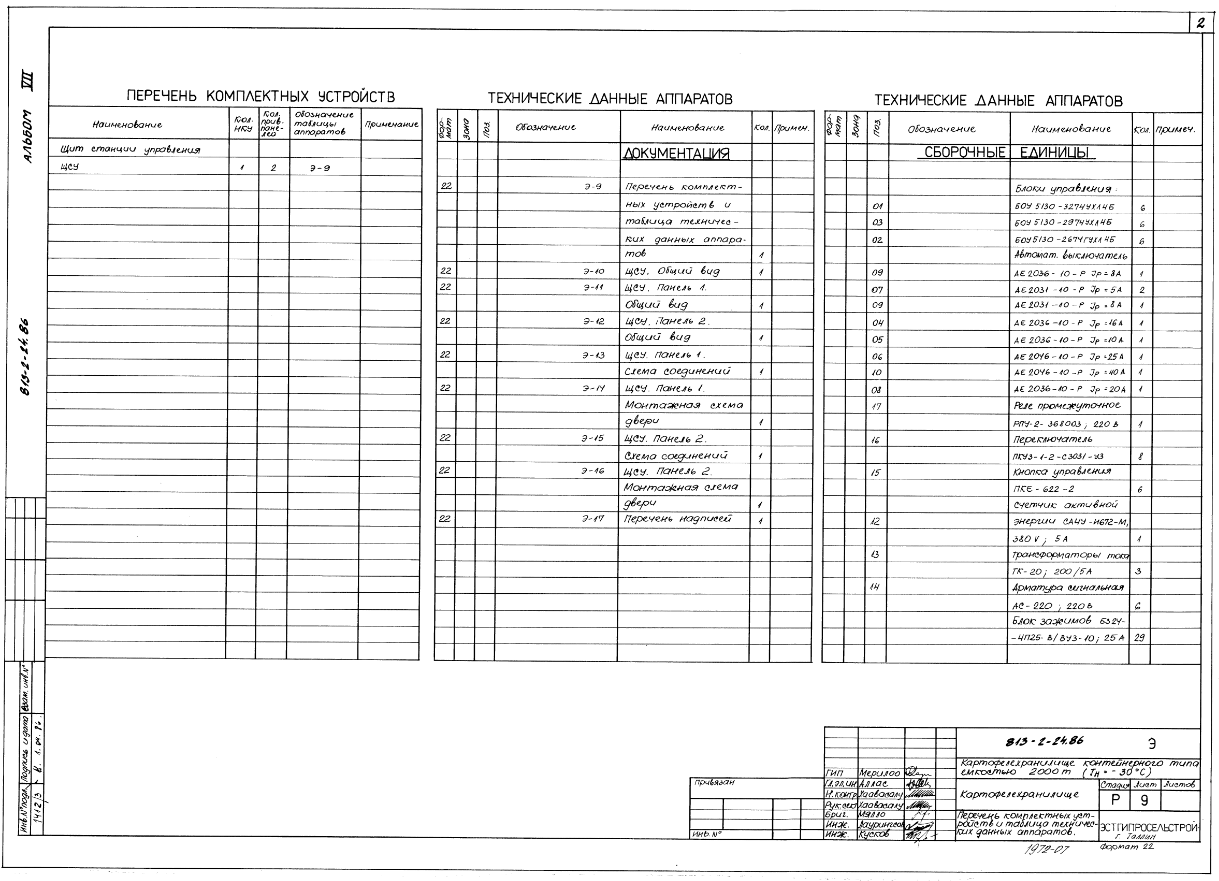 2
АЛЬБОМ VII
813-2-24.86
ПЕРЕЧЕНЬ КОМПЛЕКТНЫХ УСТРОЙСТВ
Наименование Кол. НКУ Кол. прив. пане-лей Обозначение таблицы аппаратов Примечание
Щит станции управления
ЩСУ 1 2 Э-9
ТЕХНИЧЕСКИЕ ДАННЫЕ АППАРАТОВ
Фор-мат Зона Поз. Обозначение Наименование Кол. Примеч.
ДОКУМЕНТАЦИЯ
22 Э-9 Перечень комплект-
ных устройств и
таблица техничес-
ких данных аппара-
тов 1
22 Э-10 ЩСУ. Общий вид 1
22 Э-11 ЩСУ. Панель 1.
Общий вид 1
22 Э-12 ЩСУ. Панель 2.
Общий вид 1
22 Э-13 ЩСУ. Панель 1.
Схема соединений 1
22 Э-14 ЩСУ. Панель 1.
Монтажная схема
двери 1
22 Э-15 ЩСУ. Панель 2.
Схема соединений 1
22 Э-16 ЩСУ. Панель 2.
Монтажная схема
двери 1
22 Э-17 Перечень надписей 1
ТЕХНИЧЕСКИЕ ДАННЫЕ АППАРАТОВ
Фор-мат Зона Поз. Обозначение Наименование Кол. Примеч.
СБОРОЧНЫЕ ЕДИНИЦЫ
Блоки управления
01 БОУ 5130-3274УХЛ4Б 6
03 БОУ 5130-2974УХЛ4Б 6
02 БОУ 5130-2674УХЛ4Б 6
Автомат. выключатель
09 АЕ 2036-10-Р Jр=8А 1
07 АЕ 2031-10-Р Jр=5А 2
09 АЕ 2031-10-Р Jр=8А 1
04 АЕ 2036-10-Р Jр=16А 1
05 АЕ 2036-10-Р Jр=10А 1
06 АЕ 2046-10-Р Jр=25А 1
10 АЕ 2046-10-Р Jр=40А 1
08 АЕ 2036-10-Р Jр=20А 1
17 Реле промежуточное
РПУ-2-368003; 220 В 1
16 Переключатель
ПКУ3-1-2-С3031-У3 8
15 Кнопка управления
ПКЕ-622-2 6
Счетчик активной
12 энергии СА4У-И672-М,
380 V; 5 А 1
13 трансформаторы тока
ТК-20; 200/5 А 3
14 Арматура сигнальная
АС-220; 220 В 6
Блок зажимов БЗ24-
-4П25-В/ВУ3-10; 25 А 29
Инв.№ подл. Подпись и дата Взам. инв.№
14121/3
Привязан
Инв №
813-2-24.86 Э
Картофелехранилище контейнерного типа
емкостью 2000 т (Тн = -30°С)
ГИП Мерилоо
Гл.эл.ин Аллас
Н.контр Хаавасалу
Рук.сек Хаавасалу
Бриг. Мялло
Инж. Таурингсон
Инж. Кусков
Картофелехранилище
Стадия Лист Листов
Р 9
Перечень комплектных уст-
ройств и таблица техничес-
ких данных аппаратов.
ЭСТГИПРОСЕЛЬСТРОЙ
г. Таллин
1972-07 Формат 22